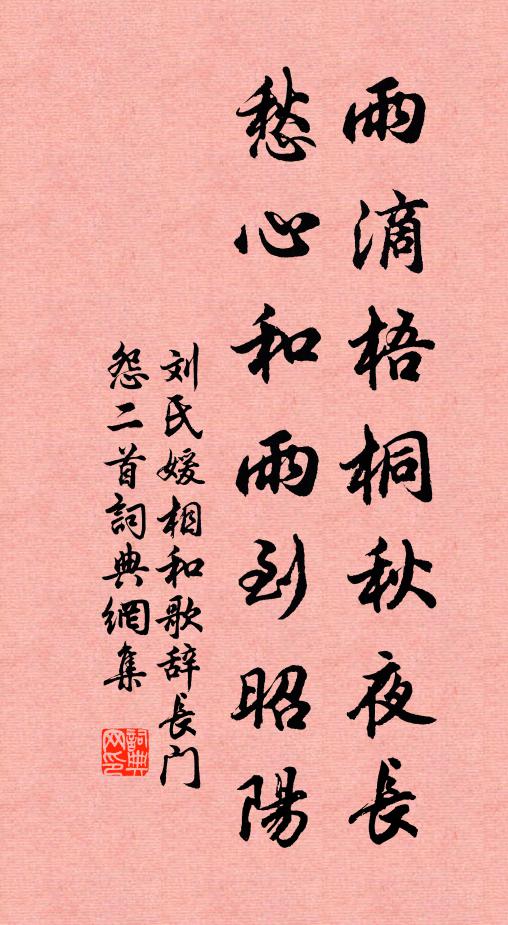 雨滴梧桐秋夜長
愁心和雨到昭陽
刘氏媛相和歌辞長门
怨二首詞典網集
詞典
网印